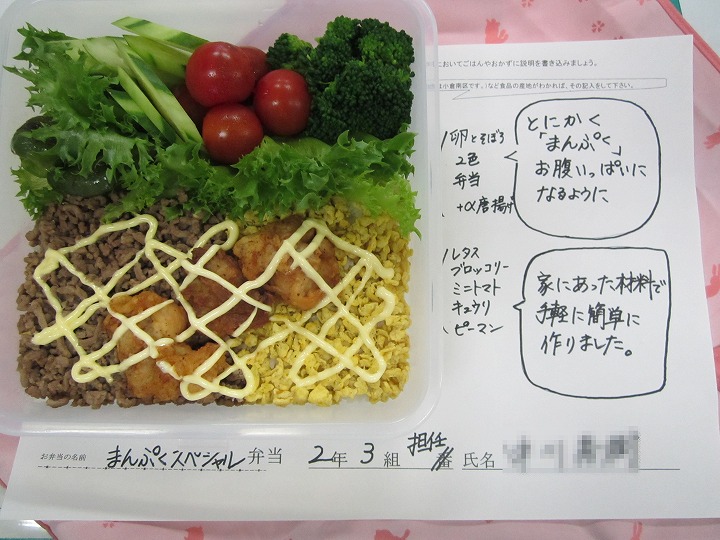 においてごはんやおかずに説明を書き込みましょう。
は小倉南区です。)など食品の産地がわかれば、その記入をして下さい。
卵とそぼろ
2色
弁当
+α唐揚げ
とにかく
「まんぷく」
お腹いっぱいに
なるように
レタス
ブロッコリー
ミニトマト
キュウリ
ピーマン
家にあった材料で
手軽に簡単に
作りました。
お弁当の名前 まんぷくスペシャル 弁当 2年 3組 担任 番 氏名